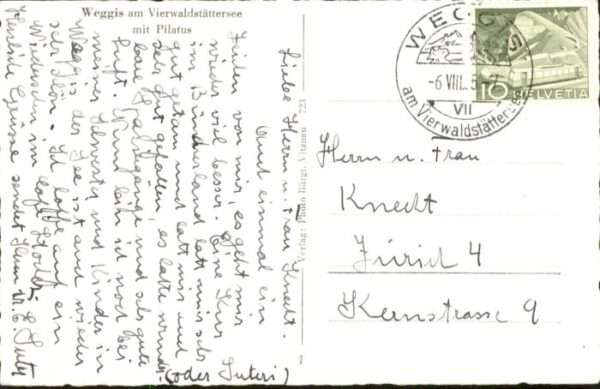 Weggis am Vierwaldstättersee
mit Pilatus
Liebe Herrn u. Frau Knecht.
Auch einmal ein
Zeilen von mir, es geht mir
wieder viel besser. Eine Kur
im Bünderland hatt mir sehr
gut getan und hatt mir
sehr gut gefallen, es hatte
bare Spaziergänge und sehr gute
Luft. Nun bin ich noch bei
meiner Schwester und Kinder in
Weggis der See ist auch wieder
sehr schön. Ich hoffe auf ein
Wiedersehn im
Herzliche Grüsse sendet Ihnen
Suter
(oder Suteri)
Verlag: Photo Bürgi, Vitznau 723
WEGGIS
-6 VIII. 5
VII
am Vierwaldstättersee
10 HELVETIA
Herrn u. Frau
Knecht
Zürich 4
Kernstrasse 9